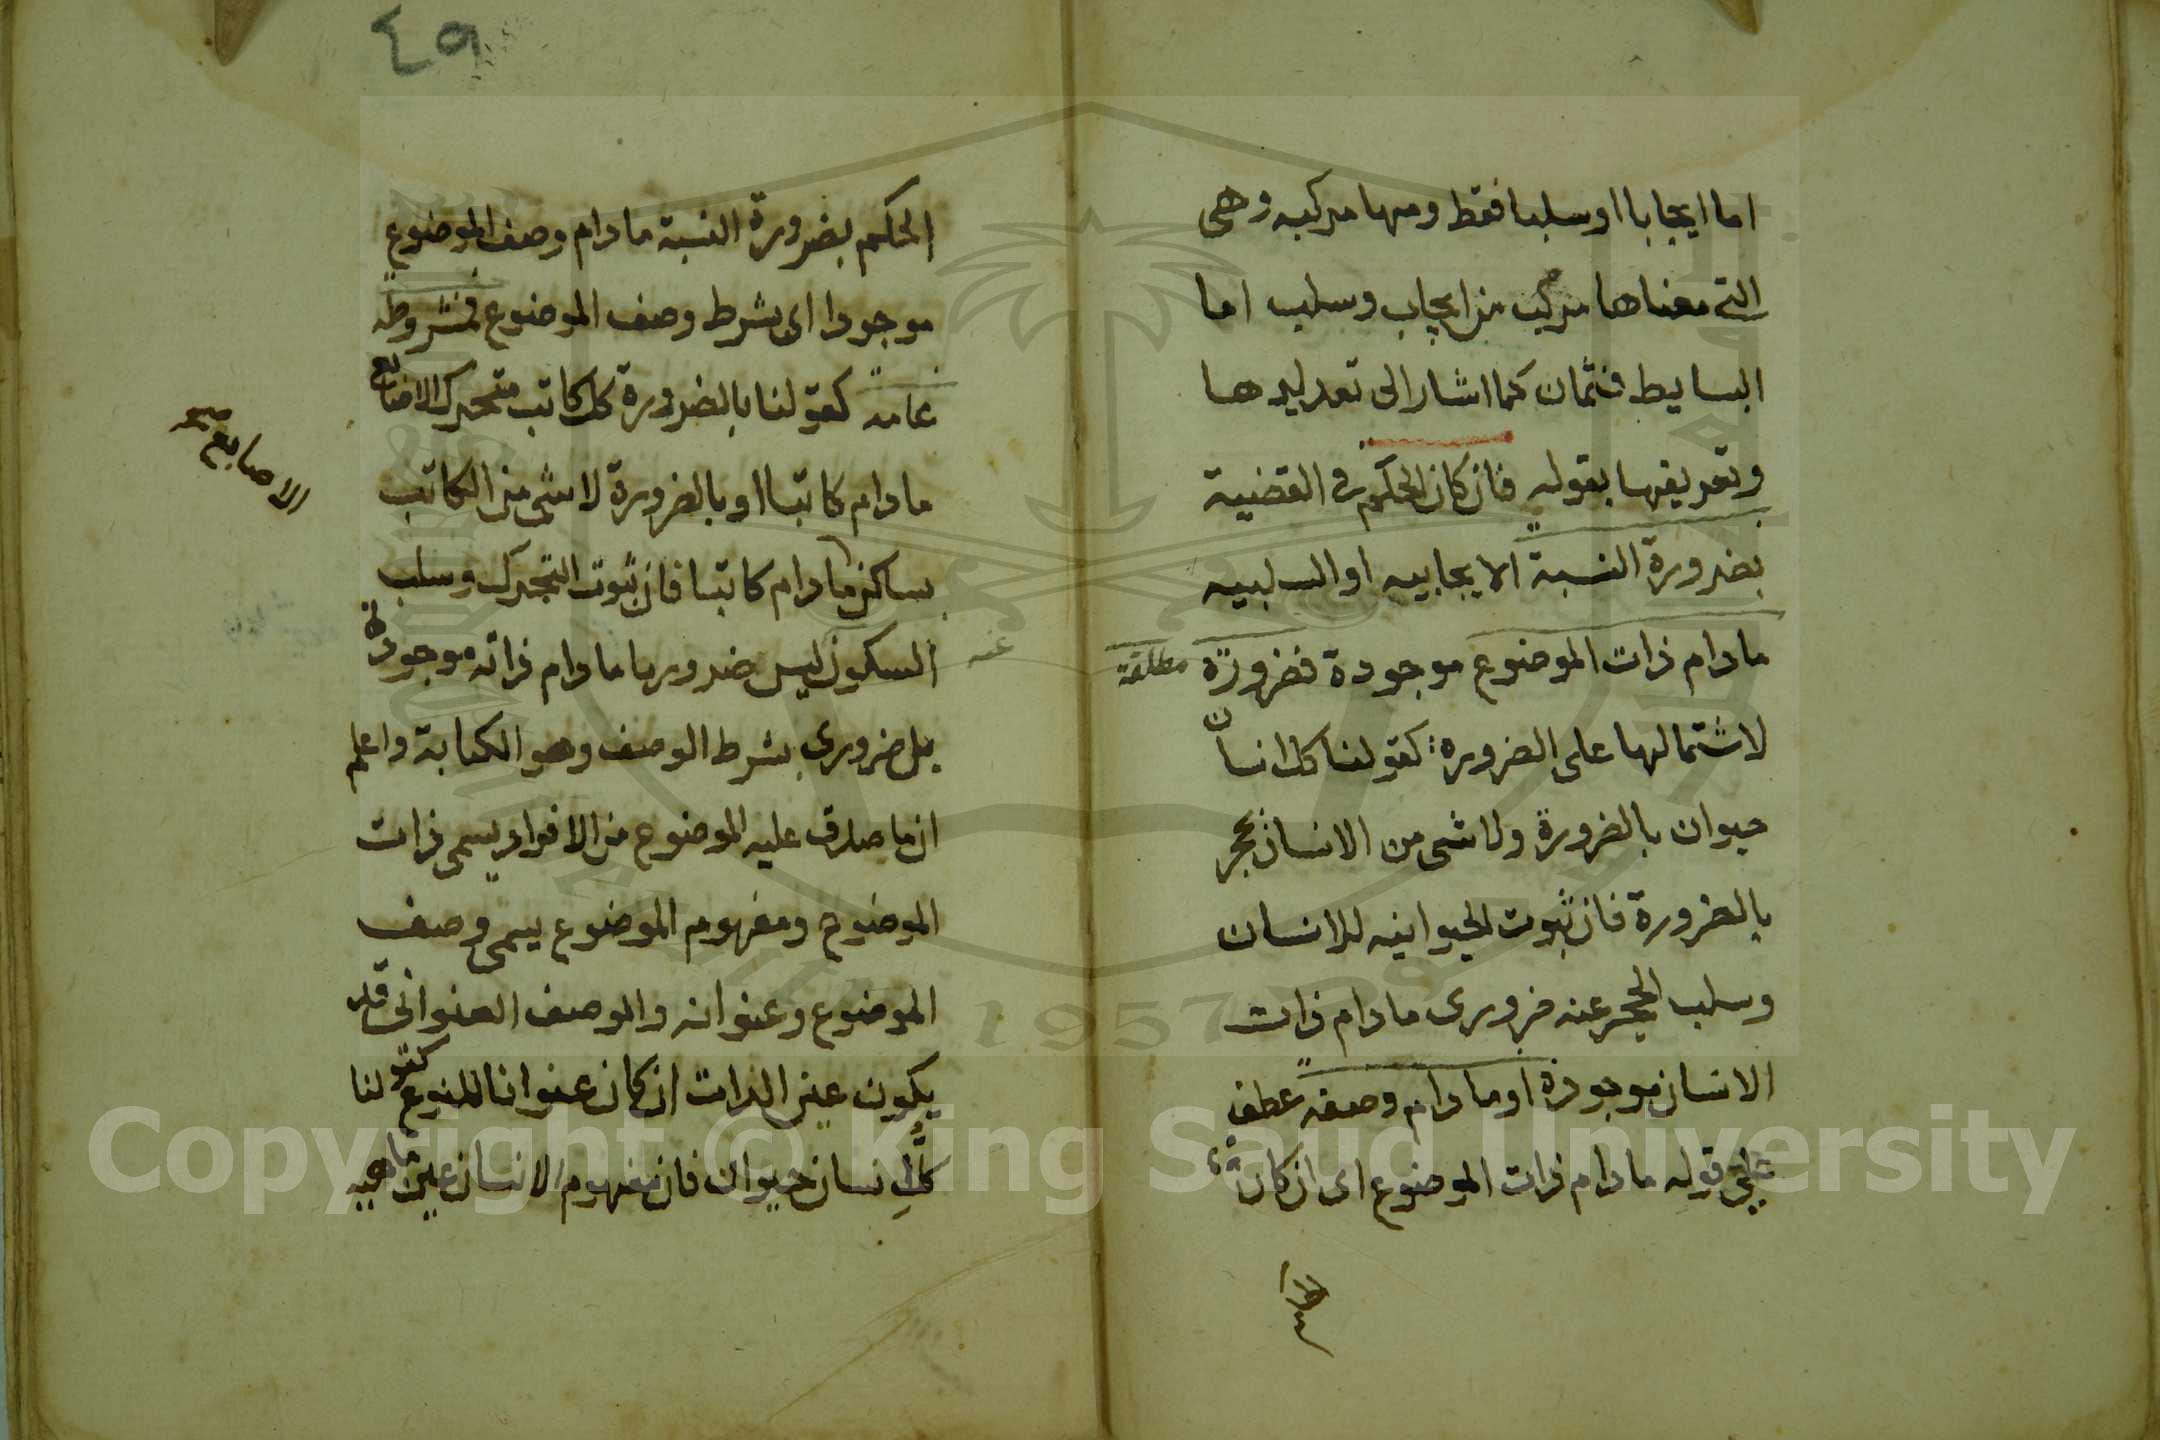 اما ايجابا او سلبا فقط ومنها مركبه وهى
التي معناها مركب من ايجاب وسلب اما
البسايط فثمان كما اشار الى تعديدها
وتعريفها بقوله فان كان الحكم فى القضية
بضرورة النسبة الايجابيه او السلبيه
مادام ذات الموضوع موجودة فضرورة مطلقة
لاشتمالها على الضروره كقولنا كل انسان
حيوان بالضرورة ولا شى من الانسان بحجر
بالضرورة فان ثبوت الحيوانيه للانسان
وسلب الحجر عنه ضرورى مادام ذات
الانسان موجودة او مادام وصفه عطف
على قوله مادام ذات الموضوع اى ان كان
الحكم بضرورة النسبة مادام وصف الموضوع
موجودا اى بشرط وصف الموضوع فمشروطه
عامه كقولنا بالضرورة كل كاتب متحرك الاصابع
مادام كاتبا او بالضرورة لا شى من الكاتب
بساكن مادام كاتبا فان ثبوت التحرك وسلب
السكون ليس ضروريا مادام ذاته موجودة
بل ضرورى بشرط الوصف وهو الكتابة واعلم
ان ما صدق عليه الموضوع من الافراد يسمى ذات
الموضوع ومفهوم الموضوع يسمى وصف
الموضوع وعنوانه والوصف العنوانى قد
يكون عين الذات ان كان عنوانا للنوع كقولنا
كل انسان حيوان فان مفهوم الانسان عين ماهيه
الاصابع صح
عنه
٤٩
1957
Copyright © King Saud University